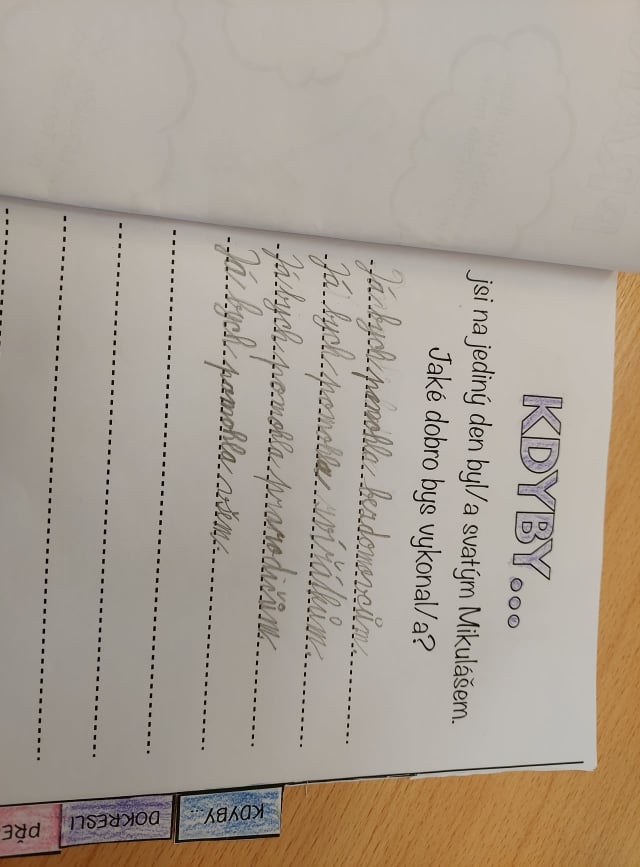 KDYBY...
jsi na jediný den byl/a svatým Mikulášem.
Jaké dobro bys vykonal/a?
Já bych pomohla bezdomovcům.
Já bych pomohla zvířátkům.
Já bych pomohla prarodičům.
Já bych pomohla všem.
KDYBY...
DOKRESLI
PŘE